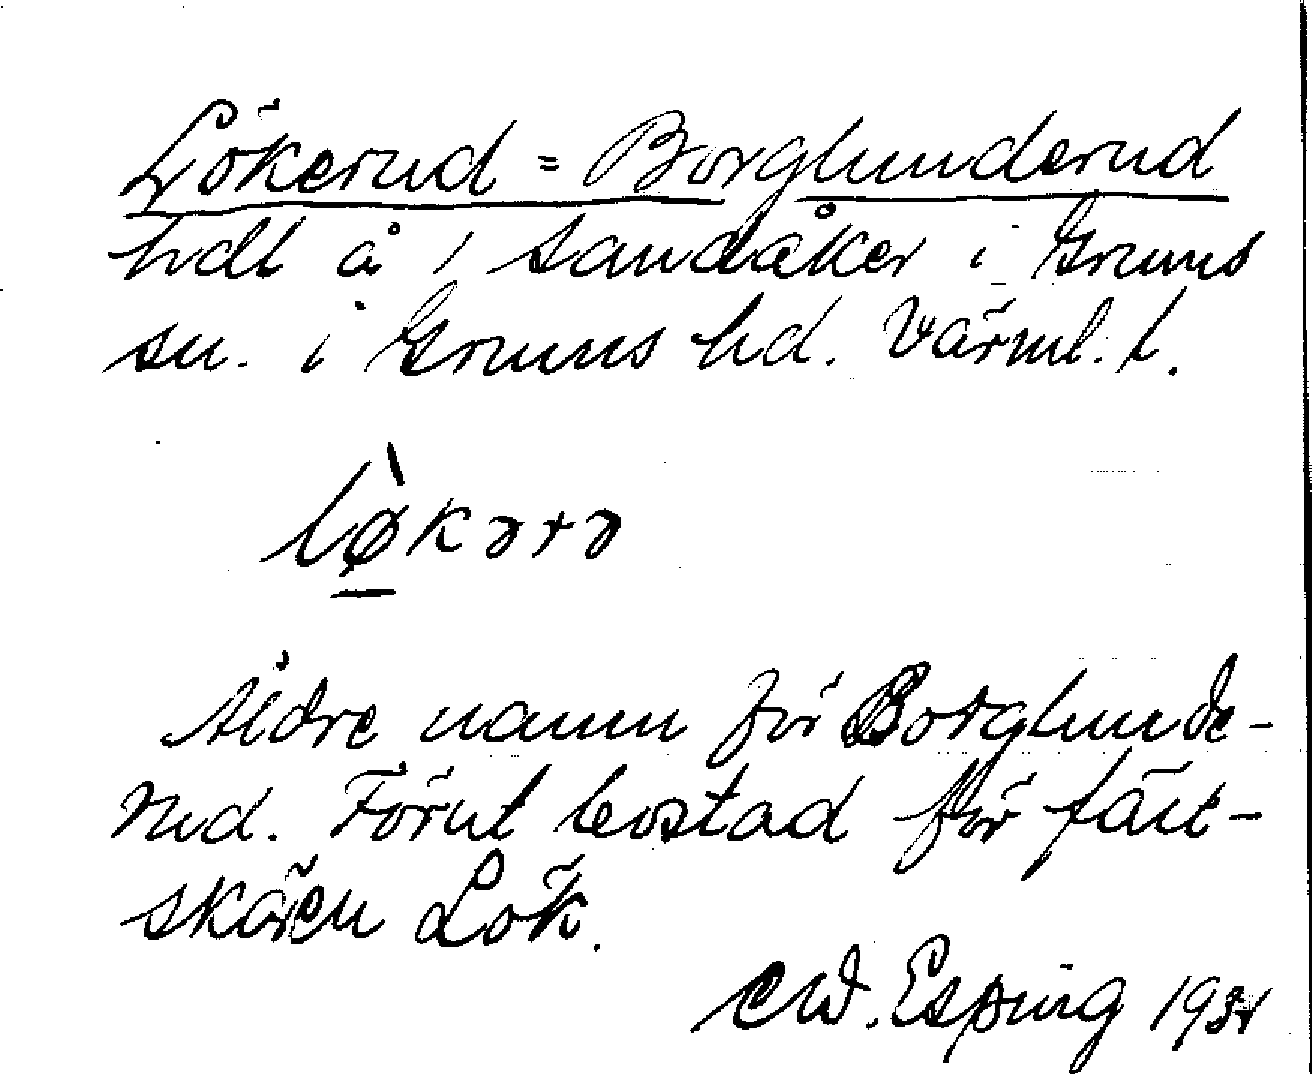 Lökerud = Borglunderud
hdl å 1 Sandåker i Grums
sn. i Grums hd. Värml. l.
lø̀kərə
Äldre namn för Borglunde-
rud. Förut bostad för fält-
skären Lök.
CW. Esping